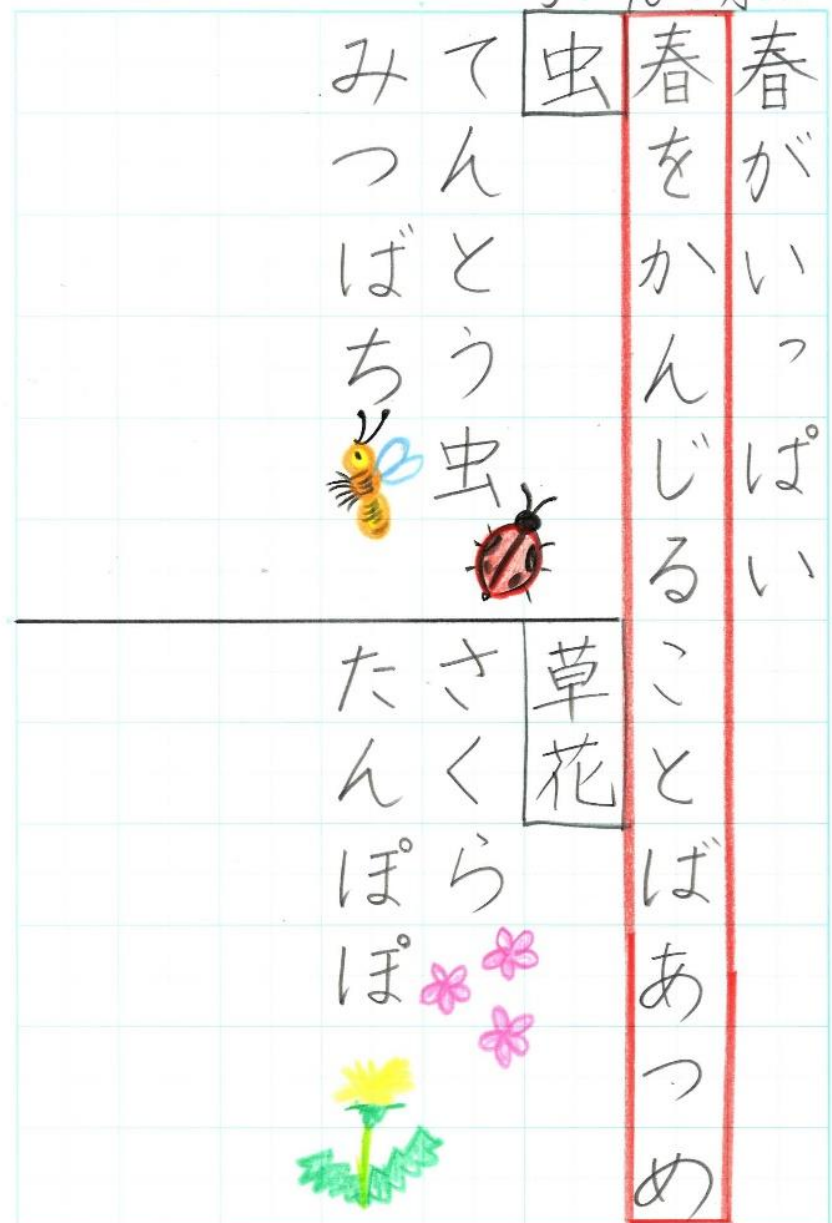 春がいっぱい
春をかんじることばあつめ
虫
てんとう虫
みつばち
草花
さくら
たんぽぽ